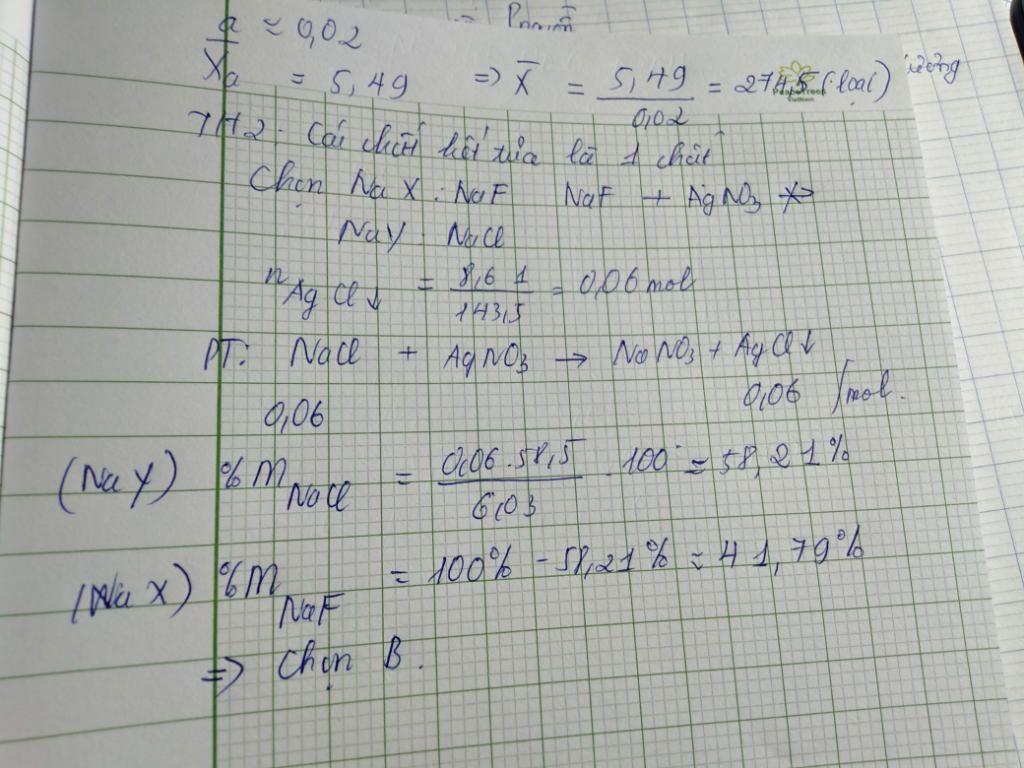 a ≈ 0,02
X̄a = 5,49 ⇒ X̄ = 5,49 / 0,02 = 274,5 (loại)
TH2: Cái chất kết tủa là 1 chất
Chọn NaX : NaF NaF + AgNO3 ↛
NaY : NaCl
nAgCl↓ = 8,61 / 143,5 = 0,06 mol
PT: NaCl + AgNO3 → NaNO3 + AgCl↓
0,06 0,06 /mol.
(NaY) %mNaCl = 0,06 . 58,5 / 6,03 . 100 = 58,21%
(NaX) %mNaF = 100% - 58,21% = 41,79%
⇒ Chọn B.